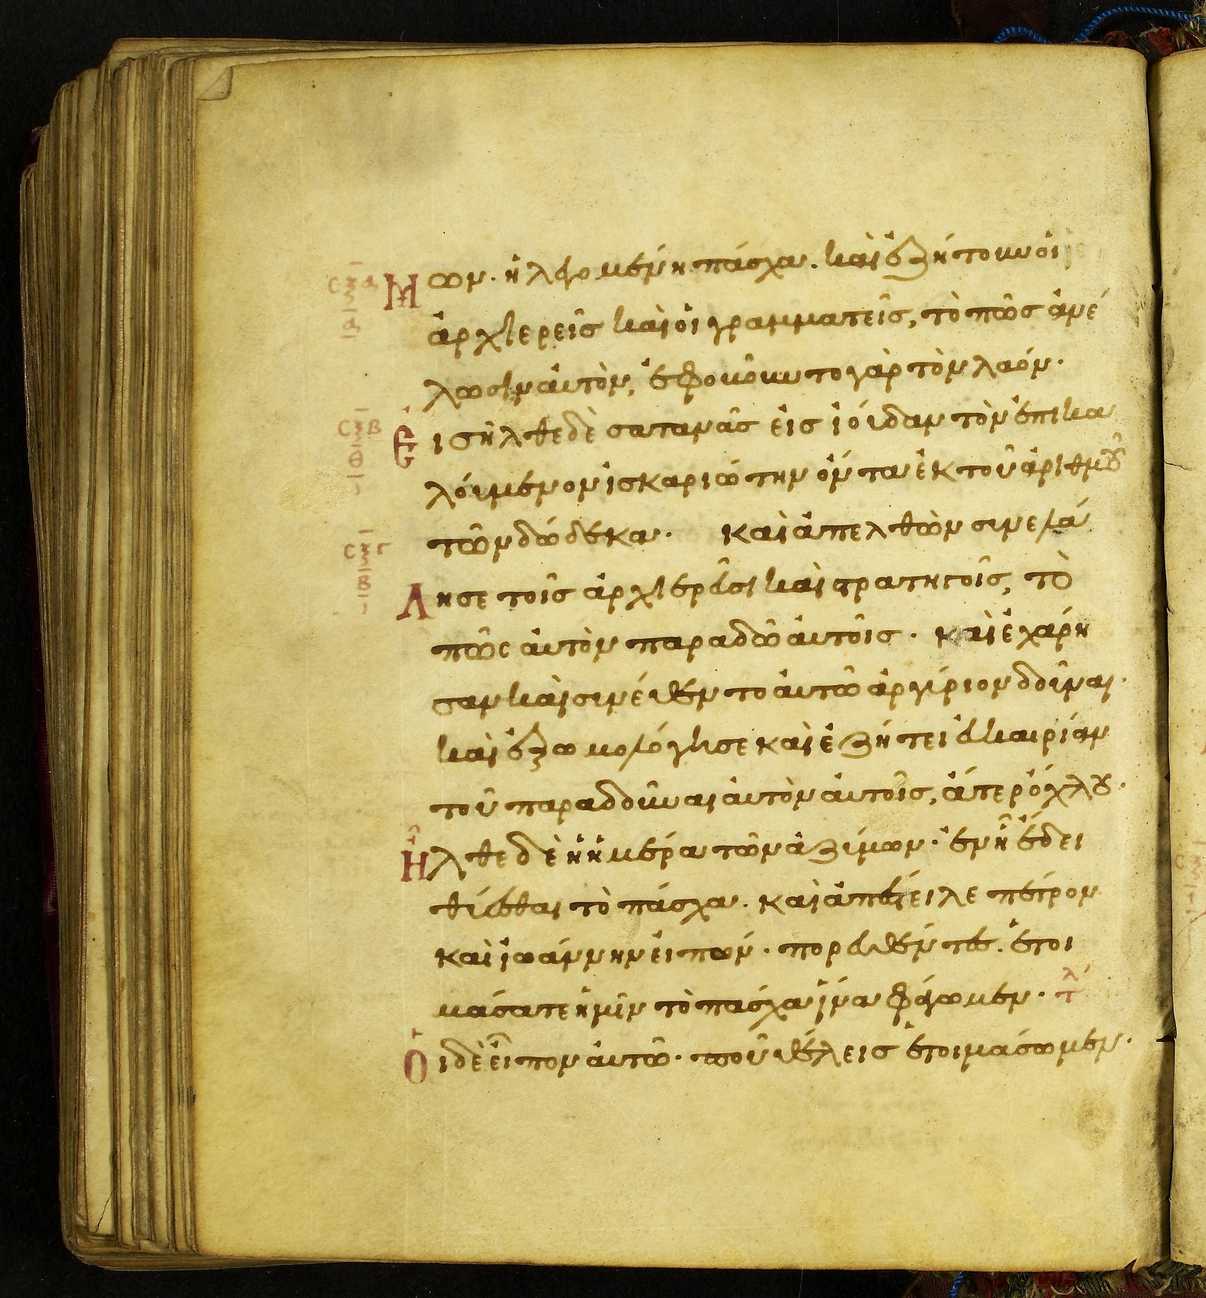 μων· ἡ λεγομένη πάσχα. καὶ ἐζήτουν οἱ
ἀρχιερεῖς καὶ οἱ γραμματεῖς, τὸ πῶς ἀνέ
λωσιν αὐτὸν, ἐφοβοῦντο γὰρ τὸν λαόν.
Εἰσῆλθε δὲ σατανᾶς εἰς ἰούδαν τὸν ἐπικα
λούμενον ἰσκαριώτην ὄντα ἐκ τοῦ ἀριθμοῦ
τῶν δώδεκα. καὶ ἀπελθὼν συνελά
λησε τοῖς ἀρχιερεῦσι καὶ στρατηγοῖς, τὸ
πῶς αὐτὸν παραδῶ αὐτοῖς. καὶ ἐχάρη
σαν καὶ συνέθεντο αὐτῶ ἀργύριον δοῦναι.
καὶ ἐξωμολόγησε καὶ ἐζήτει εὐκαιρίαν
τοῦ παραδοῦναι αὐτὸν αὐτοῖς, ἄτερ ὄχλου.
Ἦλθε δὲ ἡ ἡμέρα τῶν ἀζύμων. ἐν ἧ ἔδει
θύεσθαι τὸ πάσχα. καὶ ἀπέστειλε πέτρον
καὶ ἰωάννην εἰπών. πορευθέντες. ἑτοι
μάσατε ἡμῖν τὸ πάσχα ἵνα φάγωμεν.
Οἱ δὲ εἶπον αὐτῶ. ποῦ θέλεις ἑτοιμάσωμεν.